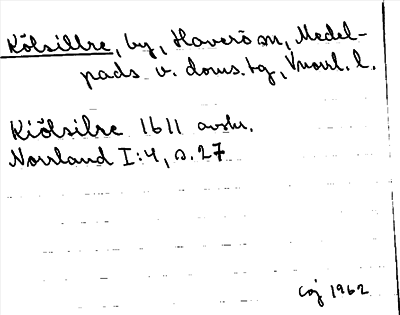 Kölsillre, by, Haverö sn, Medel-
pads v. doms.hg, Vnorrl. l.
Kiölsilre 1611 avskr.
Norrland I:4, s. 27
CGJ 1962